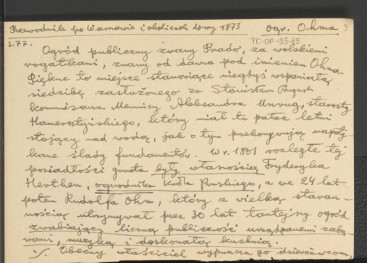 Przewodnik po Warszawie i okolicach na rok 1873 ogr. Ohma
s. 77.
Ogród publiczny zwany Prado, za wolskiemi
rogatkami, znany od dawna pod imieniem Ohma.
Piękne to miejsce stanowiące niegdyś wspaniałą
siedzibę zasłużonego za Stanisława Augusta
komisarza Mennicy Aleksandra Unrug, starosty
Hamersztyńskiego, który miał tu pałac letni
stojący nad wodą, jak o tym przekonywują napoty-
kane ślady fundamentów. W r. 1801 rozległe tej
posiadłości grunta były własnością Fryderyka
ogrodnika Króla Pruskiego, a we 24 lat
potem Rudolfa Ohm, który z wielką staran-
nością utrzymywał przez 30 lat tutejszy ogród
zwabiający liczną publiczność urządzaniem zaba-
wami, muzyką i doskonałą kuchnią.
Obecny właściciel wypuszcza go dzierżawcom